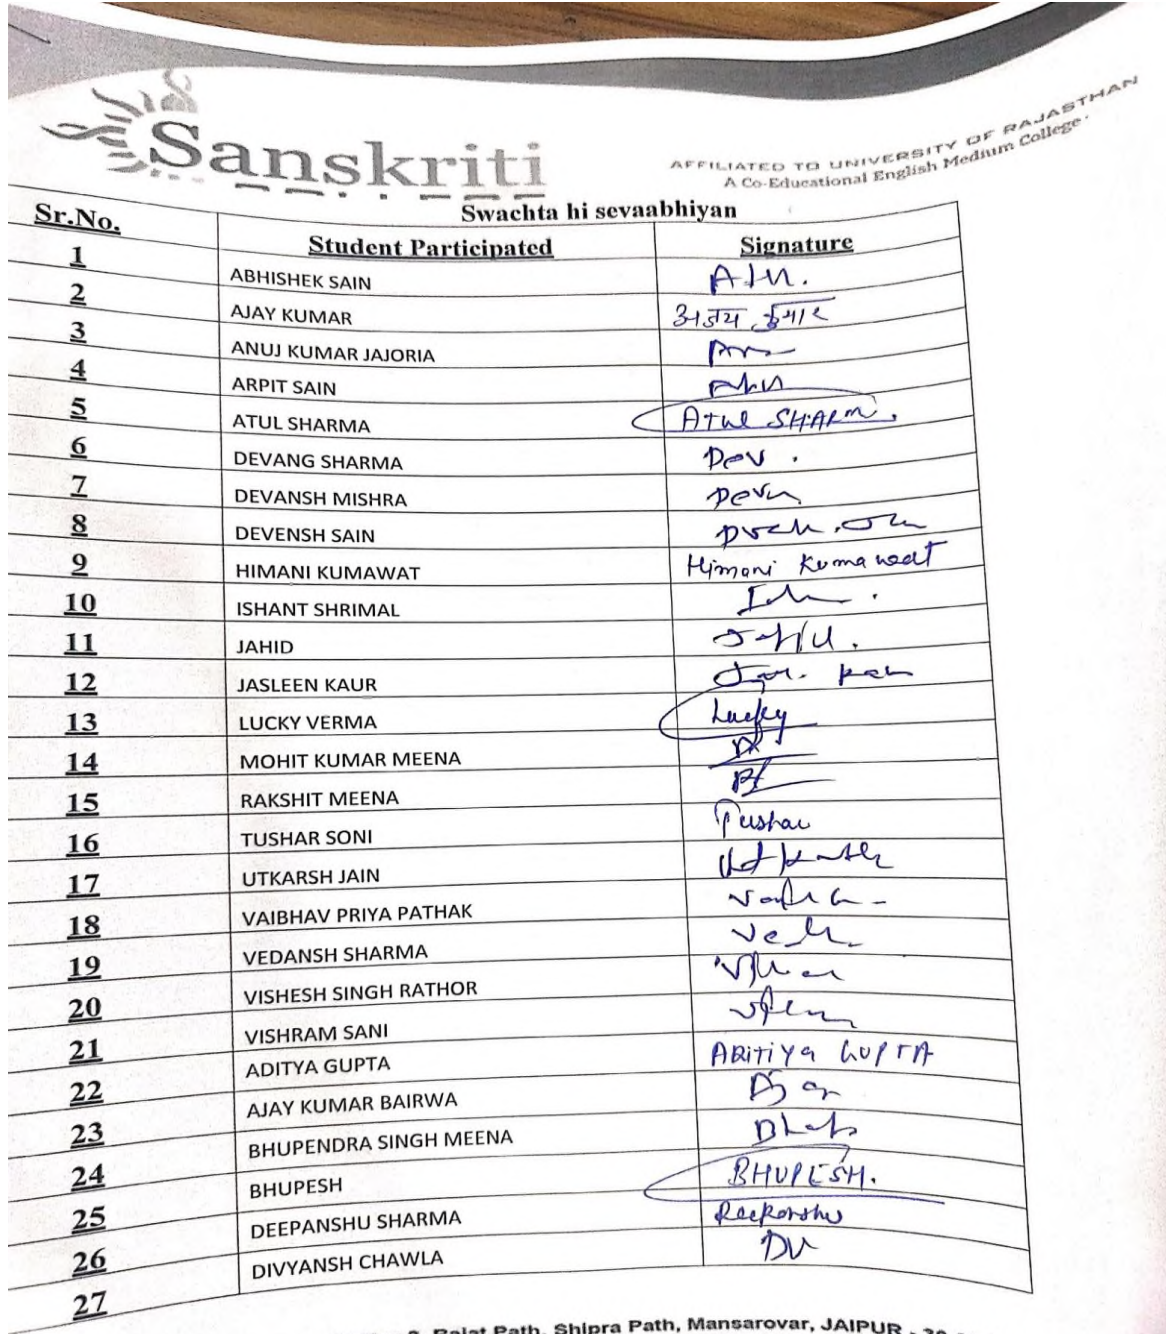 Sanskriti
AFFILIATED TO UNIVERSITY OF RAJASTHAN
A Co-Educational English Medium College
Swachta hi sevaabhiyan
Sr.No. Student Participated Signature
1 ABHISHEK SAIN
2 AJAY KUMAR अजय कुमार
3 ANUJ KUMAR JAJORIA
4 ARPIT SAIN
5 ATUL SHARMA Atul SHARM.
6 DEVANG SHARMA Dev.
7 DEVANSH MISHRA
8 DEVENSH SAIN
9 HIMANI KUMAWAT Himani Kumawat
10 ISHANT SHRIMAL
11 JAHID
12 JASLEEN KAUR
13 LUCKY VERMA Lucky
14 MOHIT KUMAR MEENA
15 RAKSHIT MEENA
16 TUSHAR SONI Tushar
17 UTKARSH JAIN
18 VAIBHAV PRIYA PATHAK
19 VEDANSH SHARMA
20 VISHESH SINGH RATHOR
21 VISHRAM SANI
22 ADITYA GUPTA ADITIYA GUPTA
23 AJAY KUMAR BAIRWA
24 BHUPENDRA SINGH MEENA
25 BHUPESH BHUPESH.
26 DEEPANSHU SHARMA
27 DIVYANSH CHAWLA
Rajat Path, Shipra Path, Mansarovar, JAIPUR